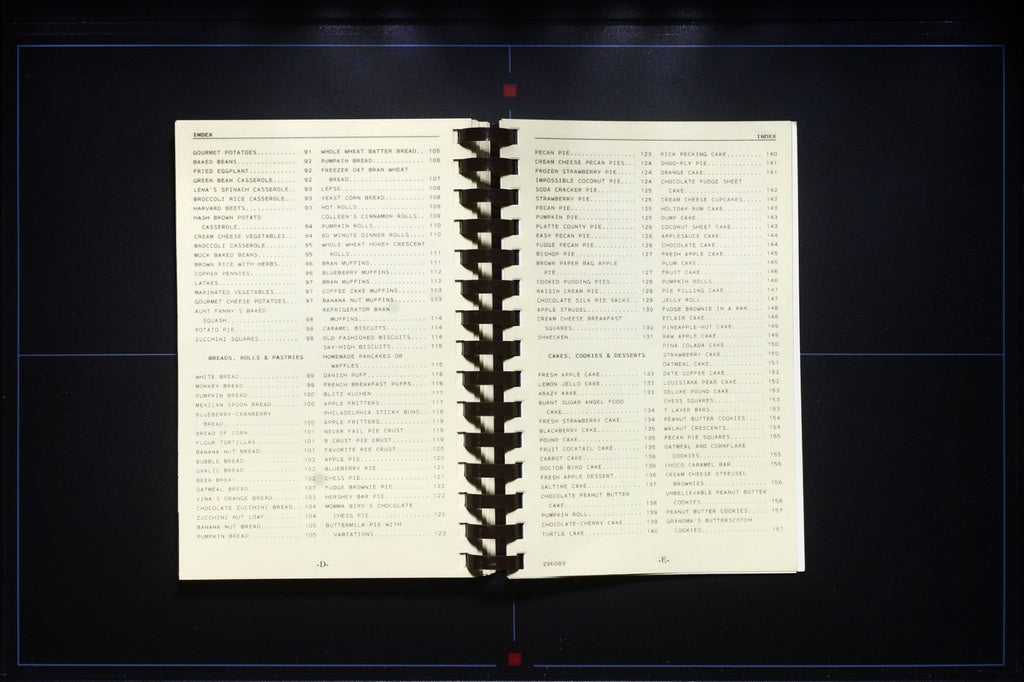 INDEX
GOURMET POTATOES.......... 91
BAKED BEANS............... 92
FRIED EGGPLANT............ 92
GREEN BEAN CASSEROLE...... 92
LENA'S SPINACH CASSEROLE.. 93
BROCCOLI RICE CASSEROLE... 93
HARVARD BEETS............. 93
HASH BROWN POTATO
CASSEROLE............... 94
CREAM CHEESE VEGETABLES... 94
BROCCOLI CASSEROLE........ 95
MOCK BAKED BEANS.......... 95
BROWN RICE WITH HERBS..... 96
COPPER PENNIES............ 96
LATKES.................... 97
MARINATED VEGETABLES...... 97
GOURMET CHEESE POTATOES... 97
AUNT FANNY'S BAKED
SQUASH.................. 98
POTATO PIE................ 98
ZUCCHINI SQUARES.......... 98
BREADS, ROLLS & PASTRIES
WHITE BREAD............... 99
MONKEY BREAD.............. 99
PUMPKIN BREAD............. 100
MEXICAN SPOON BREAD....... 100
BLUEBERRY-CRANBERRY
BREAD................... 100
BREAD OF CORN............. 101
FLOUR TORTILLAS........... 101
BANANA NUT BREAD.......... 101
BUBBLE BREAD.............. 102
GARLIC BREAD.............. 102
BEER BREAD................ 102
OATMEAL BREAD............. 103
VINA'S ORANGE BREAD....... 103
CHOCOLATE ZUCCHINI BREAD.. 104
ZUCCHINI NUT LOAF......... 104
BANANA NUT BREAD.......... 105
PUMPKIN BREAD............. 105
WHOLE WHEAT BATTER BREAD.. 105
PUMPKIN BREAD............. 106
FREEZER OAT BRAN WHEAT
BREAD................... 107
LEFSE..................... 108
YEAST CORN BREAD.......... 108
HOT ROLLS................. 109
COLLEEN'S CINNAMON ROLLS.. 109
PUMPKIN ROLLS............. 110
60 MINUTE DINNER ROLLS.... 110
WHOLE WHEAT HONEY CRESCENT
ROLLS................... 111
BRAN MUFFINS.............. 111
BLUEBERRY MUFFINS......... 112
BRAN MUFFINS.............. 112
COFFEE CAKE MUFFINS....... 113
BANANA NUT MUFFINS........ 113
REFRIGERATOR BRAN
MUFFINS................. 114
CARAMEL BISCUITS.......... 114
OLD FASHIONED BISCUITS.... 114
SKY-HIGH BISCUITS......... 115
HOMEMADE PANCAKES OR
WAFFLES................. 115
DANISH PUFF............... 116
FRENCH BREAKFAST PUFFS.... 116
BLITZ KUCHEN.............. 117
APPLE FRITTERS............ 117
PHILADELPHIA STICKY BUNS.. 118
APPLE FRITTERS............ 119
NEVER FAIL PIE CRUST...... 119
5 CRUST PIE CRUST......... 119
FAVORITE PIE CRUST........ 120
APPLE PIE................. 120
BLUEBERRY PIE............. 121
CHESS PIE................. 121
FUDGE BROWNIE PIE......... 122
HERSHEY BAR PIE........... 122
MOMMA BIRD'S CHOCOLATE
CHESS PIE............... 122
BUTTERMILK PIE WITH
VARIATIONS.............. 123
-D-
INDEX
PECAN PIE................. 123
CREAM CHEESE PECAN PIES... 124
FROZEN STRAWBERRY PIE..... 124
IMPOSSIBLE COCONUT PIE.... 124
SODA CRACKER PIE.......... 125
STRAWBERRY PIE............ 125
PECAN PIE................. 125
PUMPKIN PIE............... 126
PLATTE COUNTY PIE......... 126
EASY PECAN PIE............ 126
FUDGE PECAN PIE........... 126
BISHOP PIE................ 127
BROWN PAPER BAG APPLE
PIE..................... 127
COOKED PUDDING PIES....... 128
RAISIN CREAM PIE.......... 128
CHOCOLATE SILK PIE SACKS.. 129
APPLE STRUDEL............. 130
CREAM CHEESE BREAKFAST
SQUARES................. 130
SHNECKEN.................. 131
CAKES, COOKIES & DESSERTS
FRESH APPLE CAKE.......... 133
LEMON JELLO CAKE.......... 133
KRAZY KAKE................ 133
BURNT SUGAR ANGEL FOOD
CAKE.................... 134
FRESH STRAWBERRY CAKE..... 134
BLACKBERRY CAKE........... 135
POUND CAKE................ 135
FRUIT COCKTAIL CAKE....... 135
CARROT CAKE............... 136
DOCTOR BIRD CAKE.......... 136
FRESH APPLE DESSERT....... 136
SALTINE CAKE.............. 137
CHOCOLATE PEANUT BUTTER
CAKE.................... 138
PUMPKIN ROLL.............. 139
CHOCOLATE-CHERRY CAKE..... 139
TURTLE CAKE............... 140
PICK PECKING CAKE......... 140
SHOO-FLY PIE.............. 141
ORANGE CAKE............... 141
CHOCOLATE FUDGE SHEET
CAKE.................... 142
CREAM CHEESE CUPCAKES..... 142
HOLIDAY RUM CAKE.......... 143
DUMP CAKE................. 143
COCONUT SHEET CAKE........ 143
APPLESAUCE CAKE........... 144
CHOCOLATE CAKE............ 144
FRESH APPLE CAKE.......... 145
PLUM CAKE................. 145
FRUIT CAKE................ 146
PUMPKIN ROLLS............. 146
PIE FILLING CAKE.......... 147
JELLY ROLL................ 147
FUDGE BROWNIE IN A PAN.... 148
ECLAIR CAKE............... 148
PINEAPPLE-NUT CAKE........ 149
RAW APPLE CAKE............ 149
PINA COLADA CAKE.......... 150
STRAWBERRY CAKE........... 150
OATMEAL CAKE.............. 151
DATE COFFEE CAKE.......... 152
LOUISIANA PEAR CAKE....... 152
DELUXE POUND CAKE......... 153
CHESS SQUARES............. 153
7 LAYER BARS.............. 153
PEANUT BUTTER COOKIES..... 154
WALNUT CRESCENTS.......... 154
PECAN PIE SQUARES......... 155
OATMEAL AND CORNFLAKE
COOKIES................. 155
CHOCO CARAMEL BAR......... 156
CREAM CHEESE STREUSEL
BROWNIES................ 156
UNBELIEVABLE PEANUT BUTTER
COOKIES................. 156
PEANUT BUTTER COOKIES..... 157
GRANDMA'S BUTTERSCOTCH
COOKIES................. 157
296089
-E-